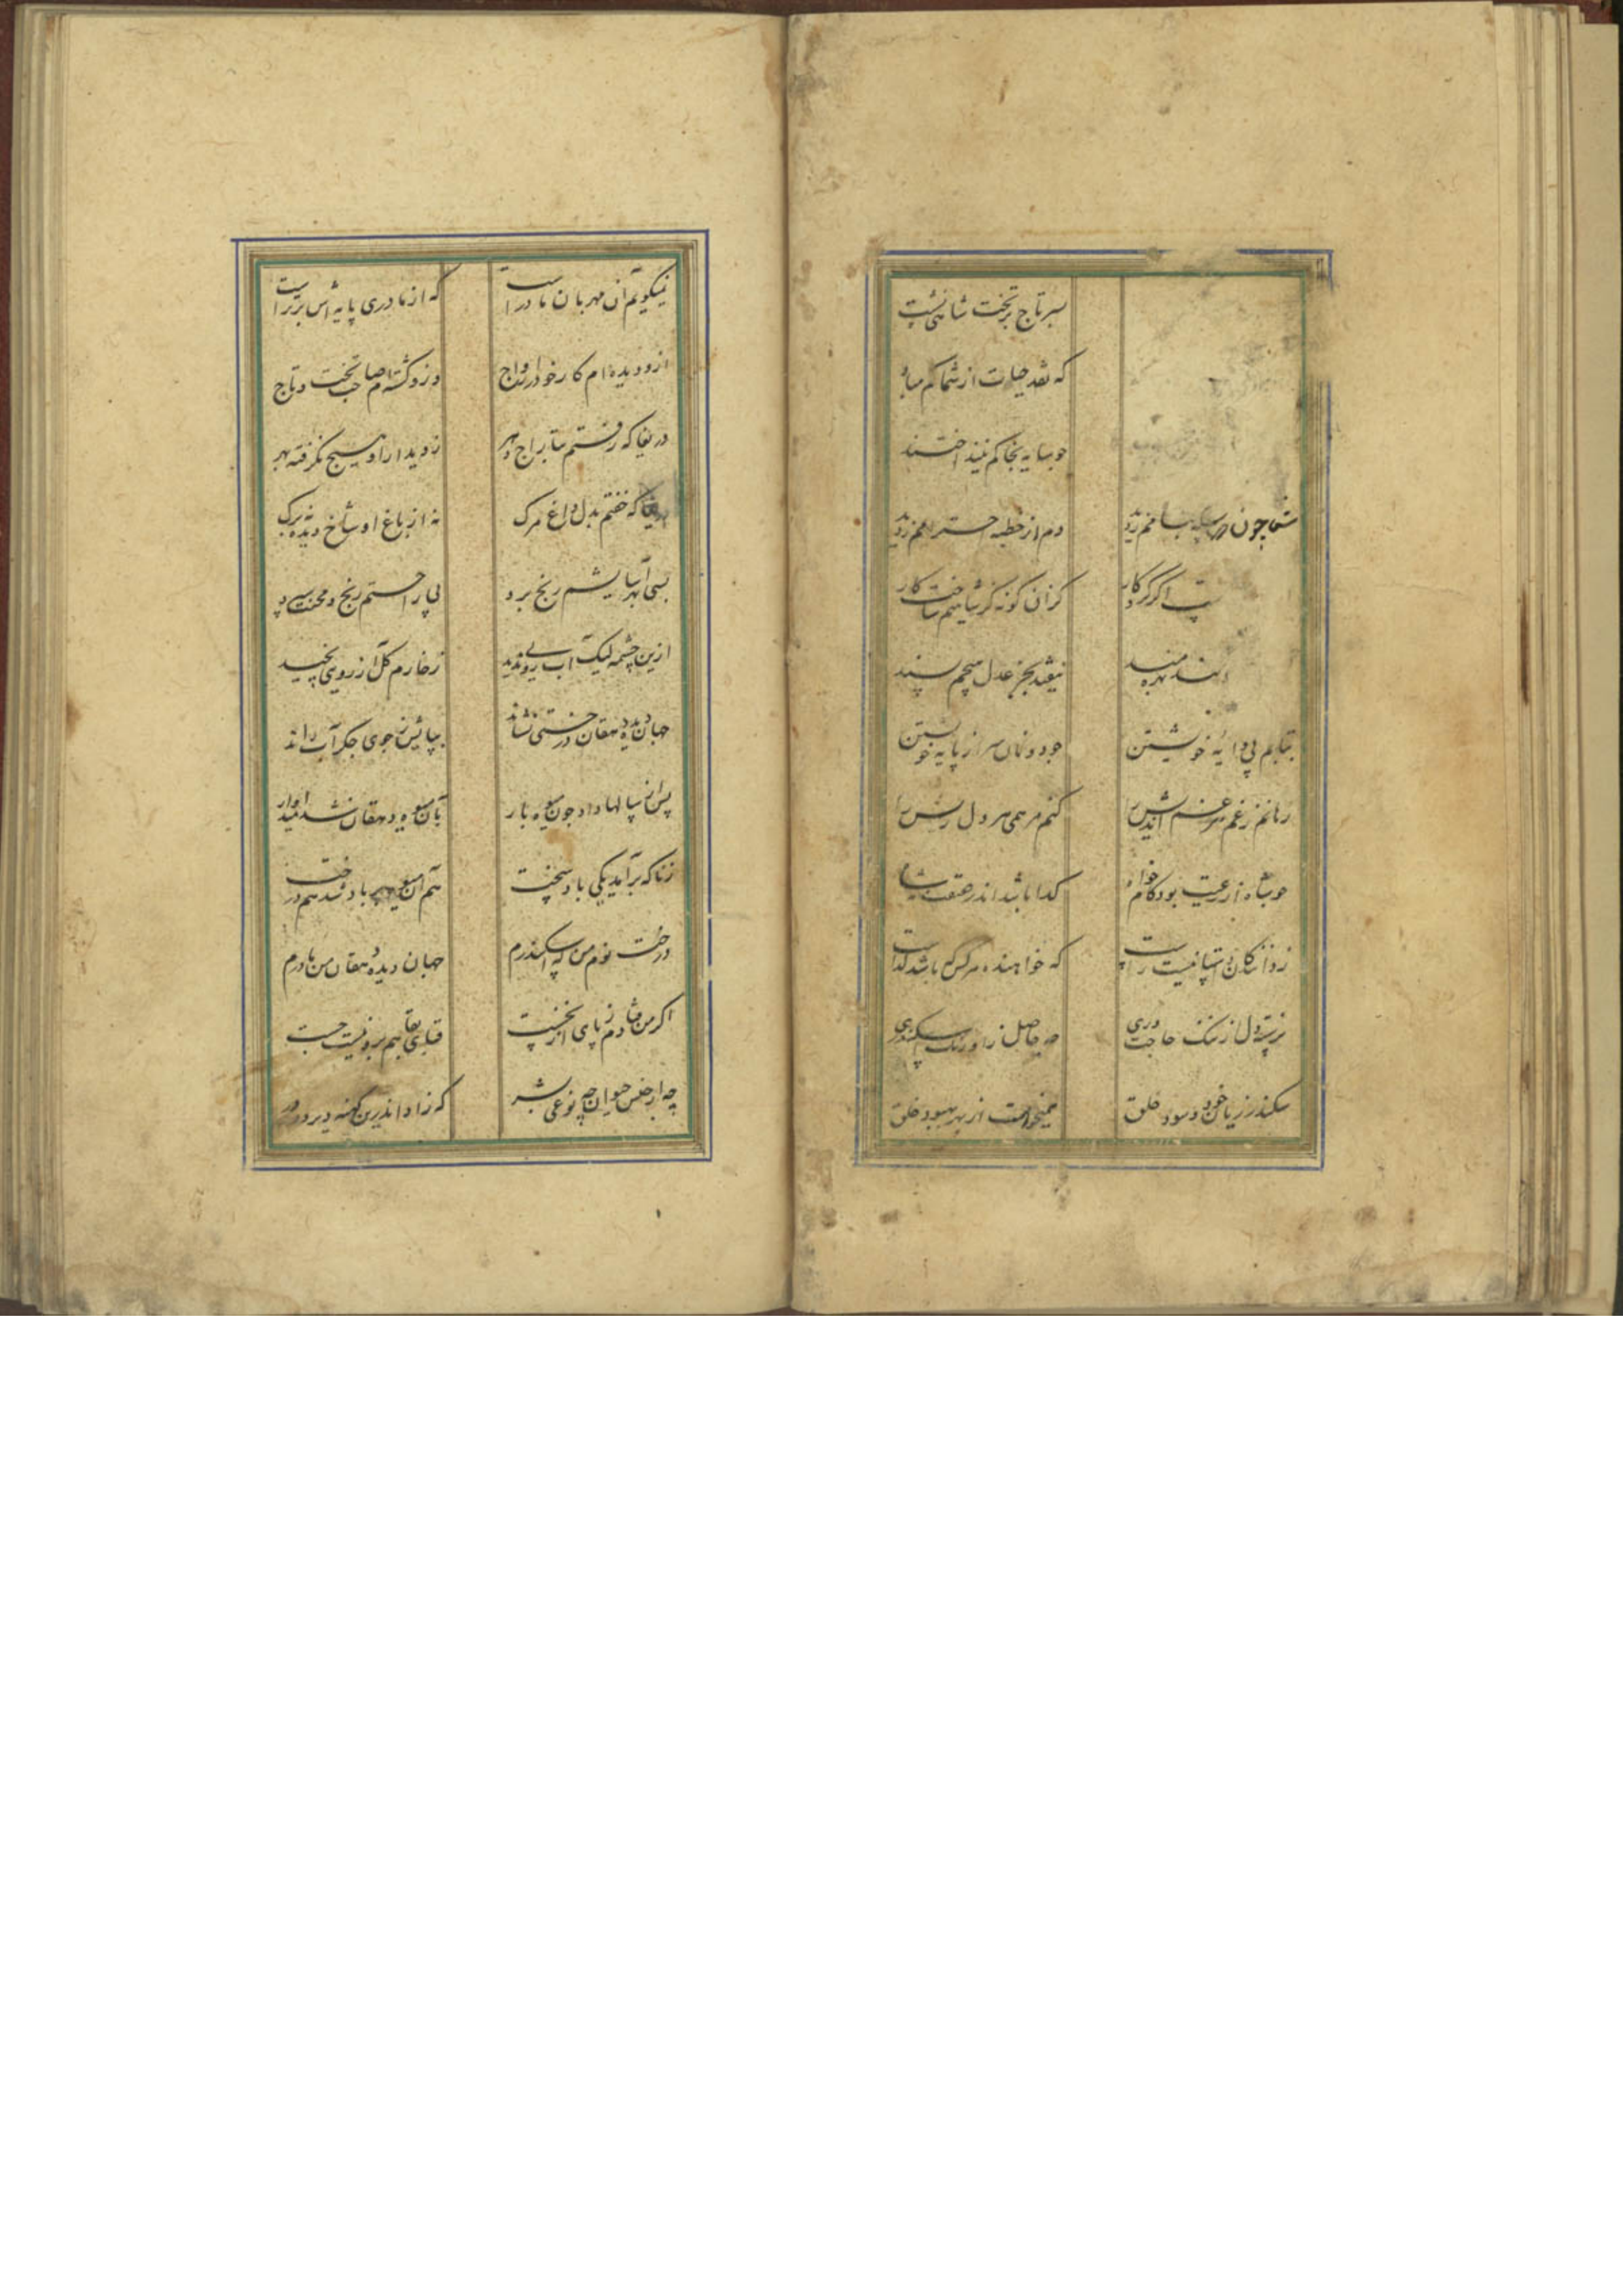 بسر تاج بر تخت شاهی نشست
که نقد حیات از شما کم مباد
چو سایه بخاکم نیند اختند
شما چون در سلسله با منم زدید دم از خطبه حشمتم زدید
اگر کردکار کز آن گونه کز شاهیم ساخت کار
بهره مند نیفتد بجز عدل هیچم پسند
نتابم پی دایهٔ خویشتن چو دونان سر از پایه خویشتن
رهانم ز غم هر غم اندیش را کنم مرهمی هر دل ریش را
چو شاه از رعیت بود کام خواه گدا باشد اندر حقیقت نه شاه
ز فرزانگان داستانیست راست که خواهنده هر کس که باشد گداست
نرسته دل از ننگ حاجت وری چه حاصل ز اورنگ اسکندری
سکندر زیان خود و سود خلق همیخواست از بهر بهبود خلق
نمیگویم آن مهربان مادر است که از مادری پایه‌اش برتر است
ازو دیده‌ام کار خود را رواج وزو گشته‌ام صاحب تخت و تاج
دریغا که رفتم بتاراج دهر ز دیدار او هیچ نگرفته بهر
دریغا که خفتم بدل داغ مرگ نه از باغ او شاخ دیده نه برگ
بسی بهر آسایشم رنج برد پی راحتم رنج و محنت سپرد
ازین چشمه لیک آب رویی ندید ز خارم گل آرزویی نچید
جهان دیده دهقان درختی نشاند بپایش ز جوی جگر آب راند
پس از سالها داد چون میوه بار بآن میوه دهقان شد امیدوار
ز ناگه برآمد یکی باد سخت هم آن میوه بر باد شد هم درخت
درخت نوم من که اسکندرم جهان دیده دهقان من مادرم
اگر من فتادم ز پای از نخست قبای بقا هم برو نیست چست
چه از جنس حیوان چه نوعی بشر که زاد اندرین کهنه دیر دو در